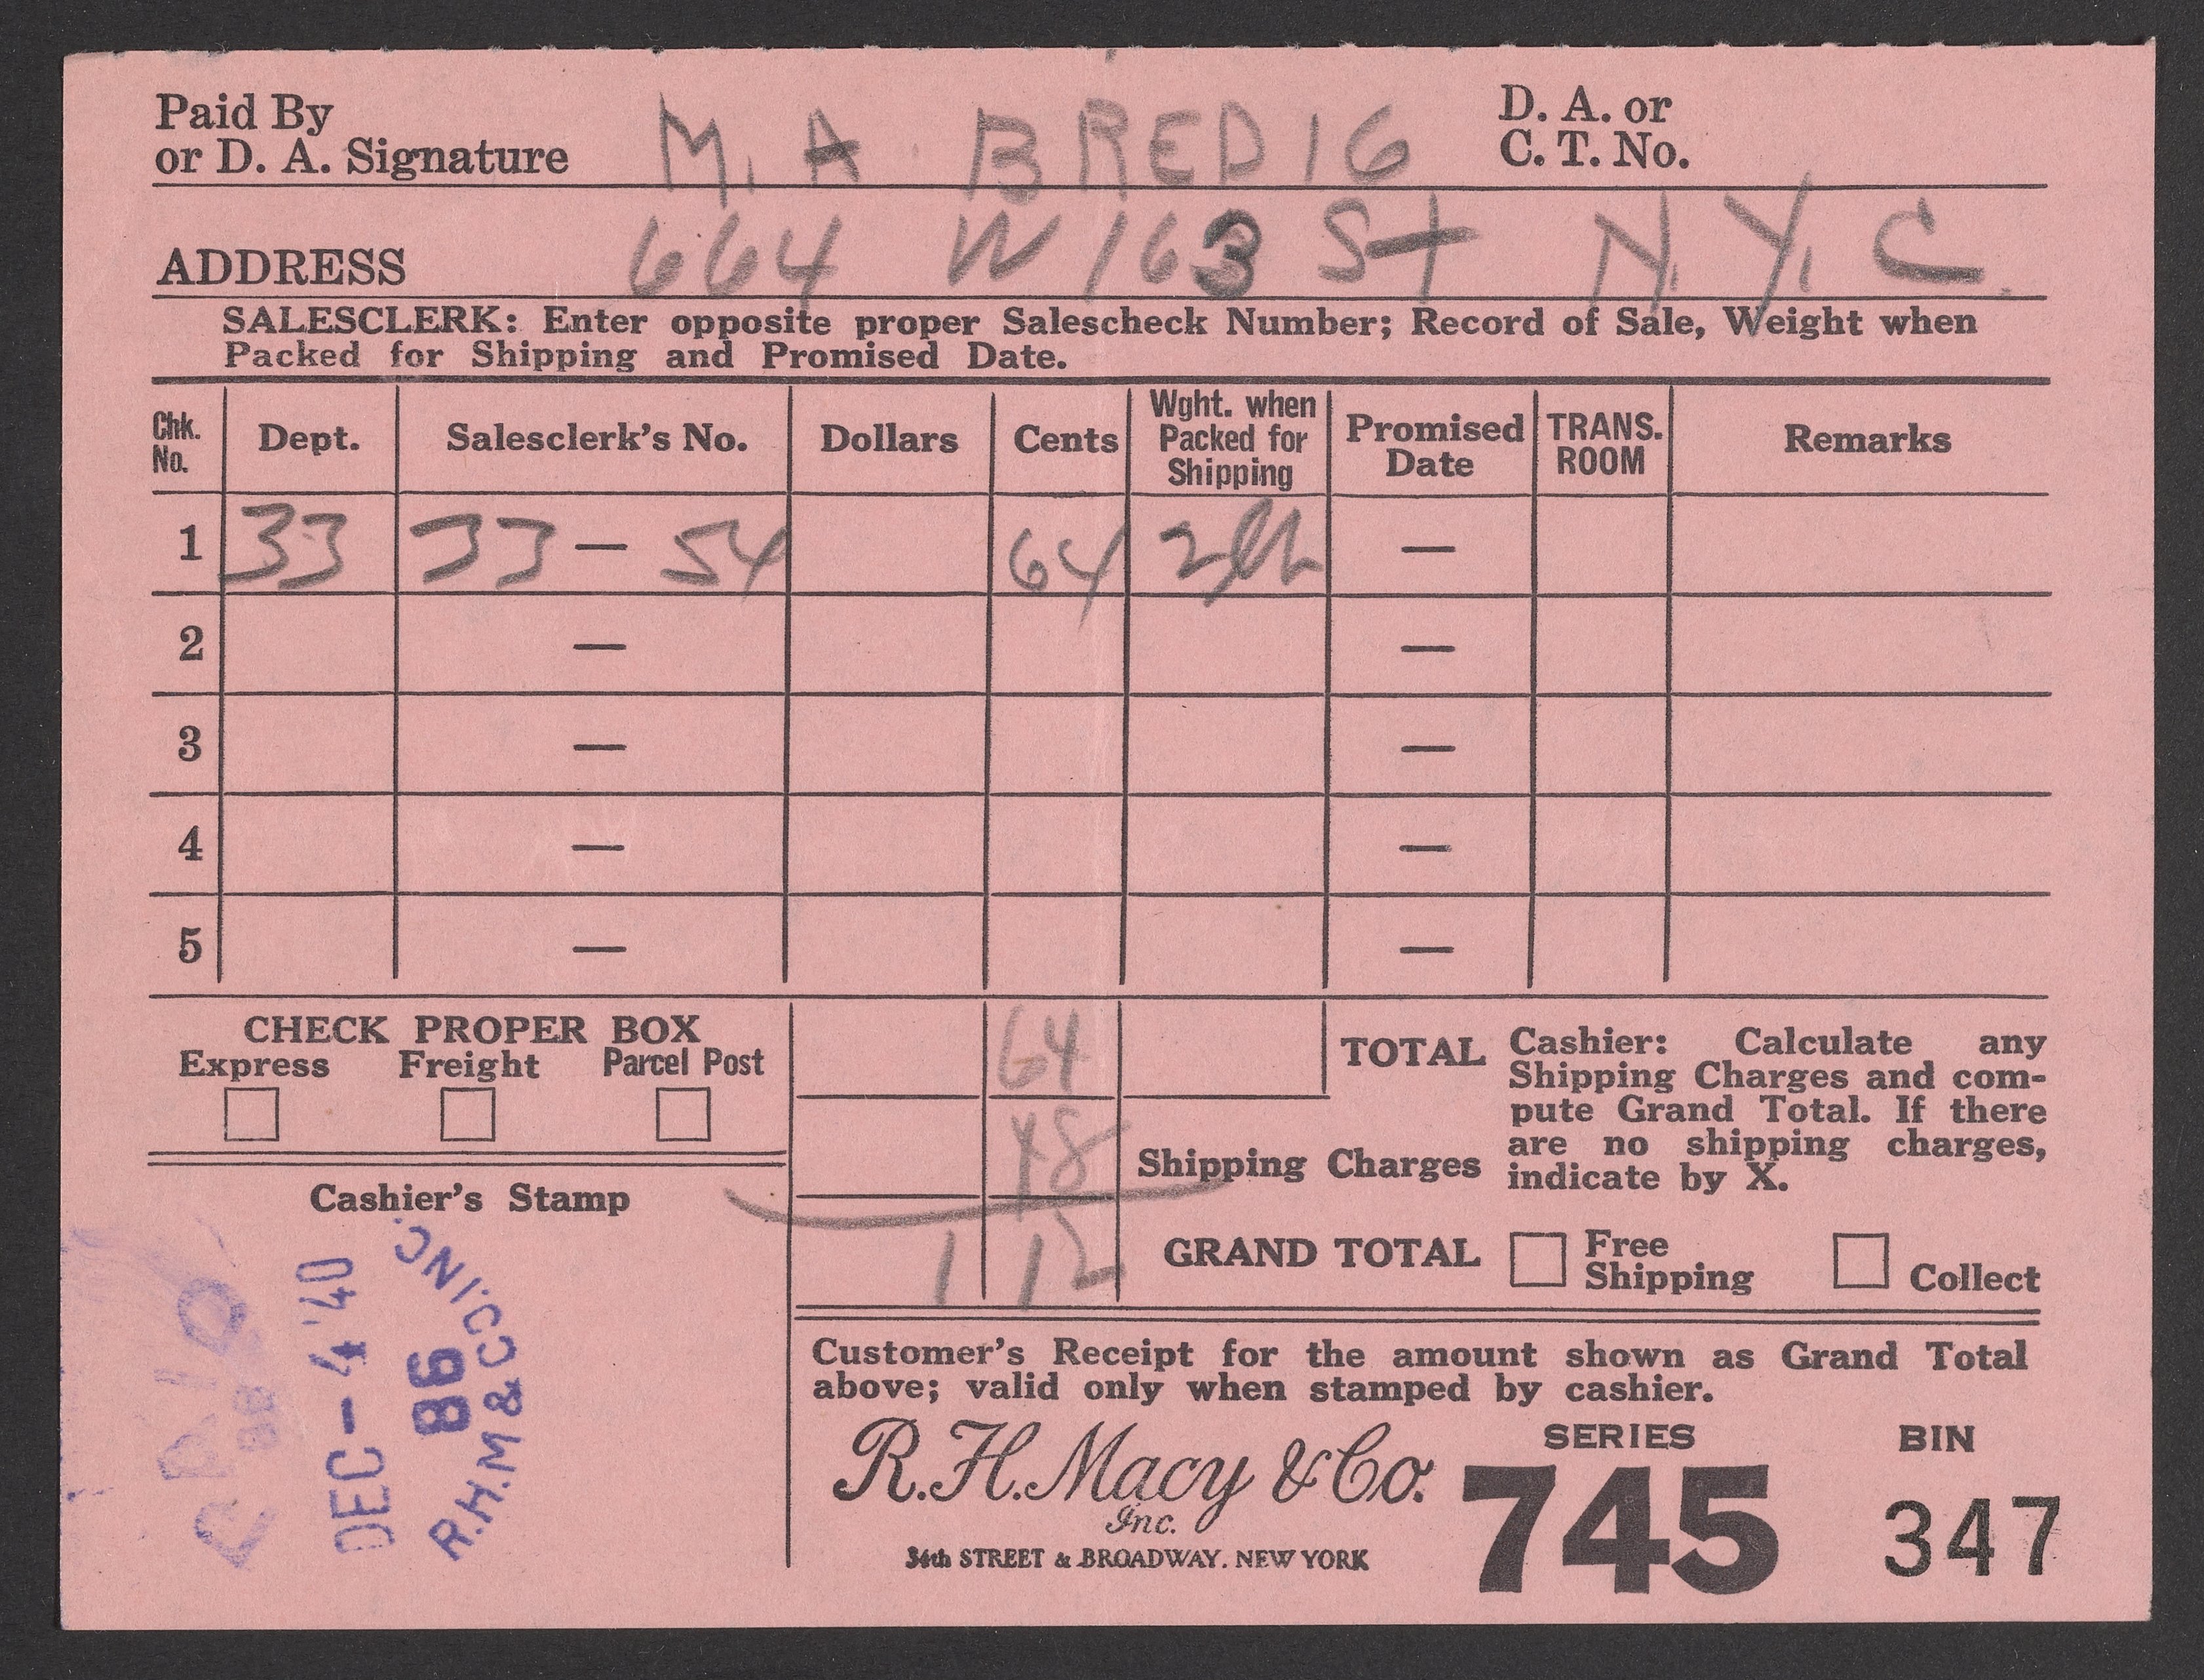 Paid By
or D. A. Signature M. A. BREDIG D. A. or
C. T. No.
ADDRESS 664 W 163 St N.Y.C.
SALESCLERK: Enter opposite proper Salescheck Number; Record of Sale, Weight when
Packed for Shipping and Promised Date.
Chk. No. Dept. Salesclerk's No. Dollars Cents Wght. when Packed for Shipping Promised Date TRANS. ROOM Remarks
1 33 33 — 54 64 —
2 — —
3 — —
4 — —
5 — —
CHECK PROPER BOX
Express Freight Parcel Post
64 TOTAL
48 Shipping Charges
1 12 GRAND TOTAL
Cashier: Calculate any
Shipping Charges and com-
pute Grand Total. If there
are no shipping charges,
indicate by X.
Free Shipping
Collect
Cashier's Stamp
DEC - 4 '40
86
R.H.M & CO. INC.
Customer's Receipt for the amount shown as Grand Total
above; valid only when stamped by cashier.
R. H. Macy & Co.
Inc.
34th STREET & BROADWAY. NEW YORK
SERIES
745
BIN
347